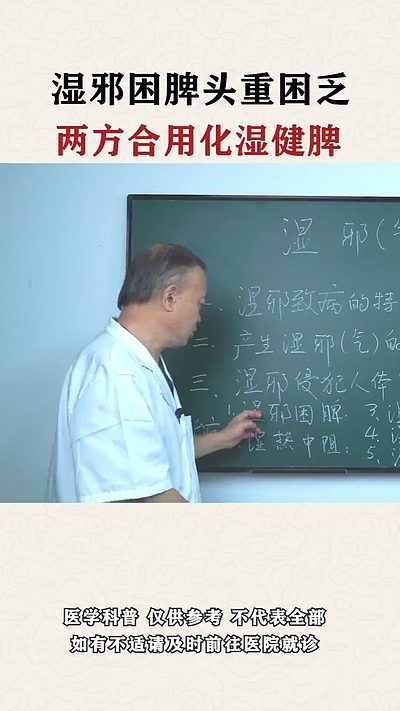 湿邪困脾头重困乏
两方合用化湿健脾
湿 邪(
一、湿邪致病的特
二、产生湿邪(气)的
三、湿邪侵犯人体
1.湿邪困脾; 3.
湿热中阻; 4.
5.
医学科普 仅供参考 不代表全部
如有不适请及时前往医院就诊